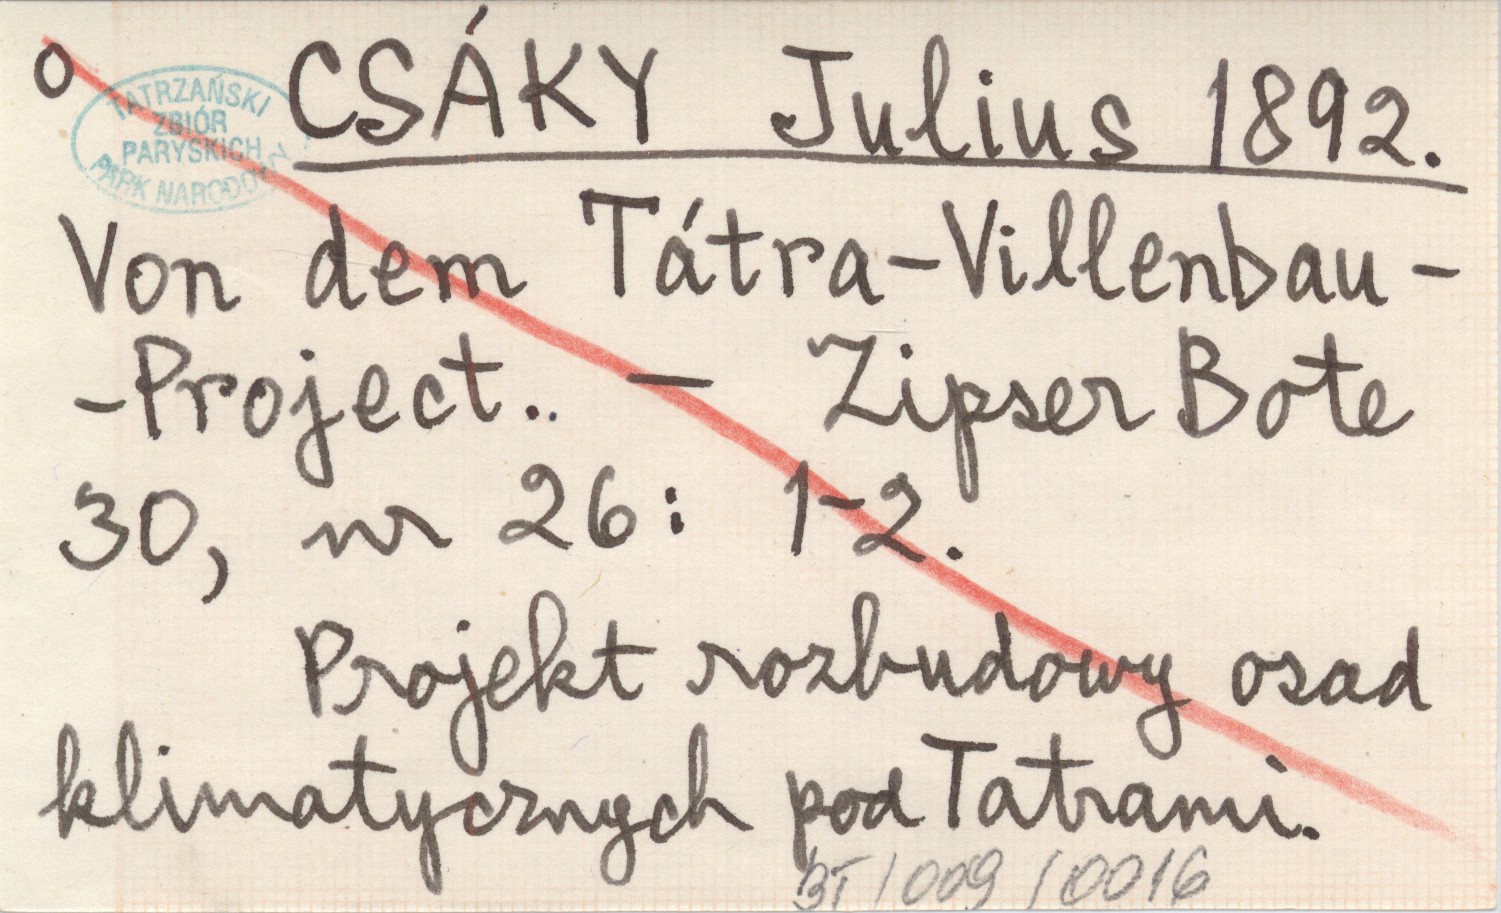 o
TATRZAŃSKI
ZBIÓR
PARYSKICH
PARK NARODOWY
CSÁKY Julius 1892.
Von dem Tátra-Villenbau-
-Project.. — Zipser Bote
30, nr 26: 1-2.
Projekt rozbudowy osad
klimatycznych pod Tatrami.
BT/009/0016